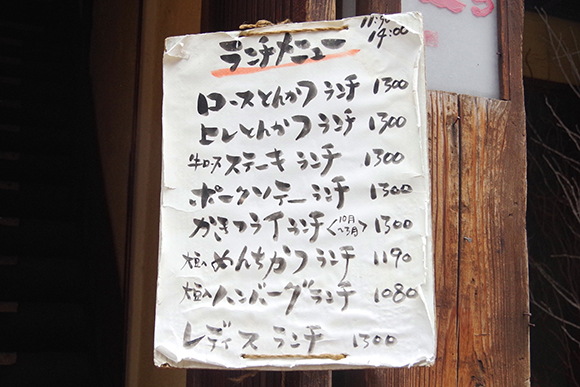 ランチメニュー
11:30
14:00
ロースとんかつランチ 1300
ヒレとんかつランチ 1300
牛ロースステーキランチ 1300
ポークソテーランチ 1300
かきフライランチ〈10月〜3月〉 1300
大豆入めんちかつランチ 1190
大豆入ハンバーグランチ 1080
レディスランチ 1300